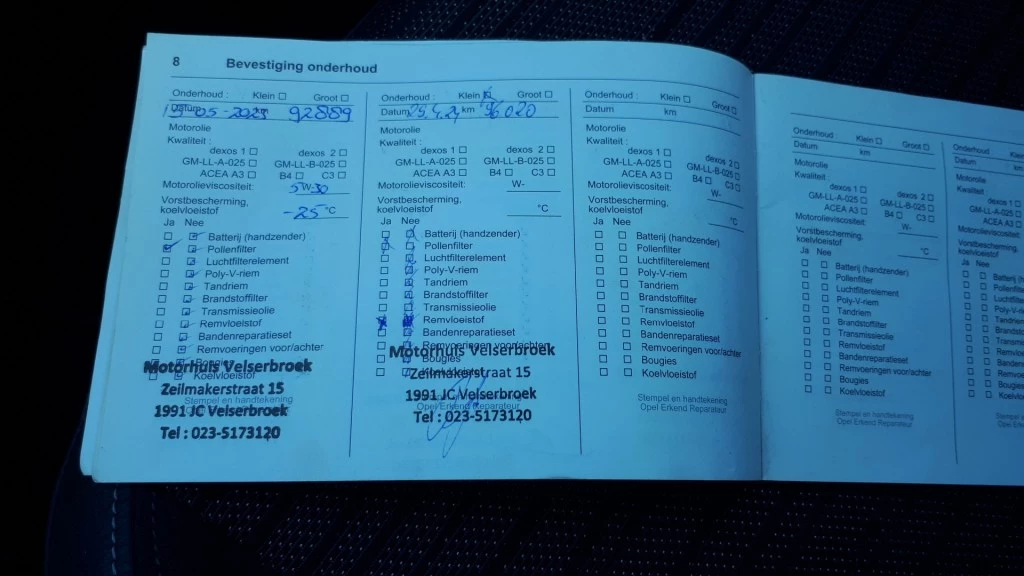 8 Bevestiging onderhoud
Onderhoud : Klein Groot
Datum km 92889
Motorolie
Kwaliteit :
dexos 1 dexos 2
GM-LL-A-025 GM-LL-B-025
ACEA A3 B4 C3
Motorolieviscositeit: 5W-30
Vorstbescherming,
koelvloeistof -25 °C
Ja Nee
Batterij (handzender)
Pollenfilter
Luchtfilterelement
Poly-V-riem
Tandriem
Brandstoffilter
Transmissieolie
Remvloeistof
Bandenreparatieset
Remvoeringen voor/achter
Bougies
Motorhuis Velserbroek
Zeilmakerstraat 15
Stempel en handtekening
1991 JC Velserbroek
Tel : 023-5173120
Onderhoud : Klein Groot
Datum 25.4.24 km 96020
Motorolie
Kwaliteit :
dexos 1 dexos 2
GM-LL-A-025 GM-LL-B-025
ACEA A3 B4 C3
Motorolieviscositeit: W-
Vorstbescherming,
koelvloeistof °C
Ja Nee
Batterij (handzender)
Pollenfilter
Luchtfilterelement
Poly-V-riem
Tandriem
Brandstoffilter
Transmissieolie
Remvloeistof
Bandenreparatieset
Remvoeringen voor/achter
Motorhuis Velserbroek
Bougies
Zeilmakerstraat 15
1991 JC Velserbroek
Opel Erkend Reparateur
Tel : 023-5173120
Onderhoud : Klein Groot
Datum km
Motorolie
Kwaliteit :
dexos 1 dexos 2
GM-LL-A-025 GM-LL-B-025
ACEA A3 B4 C3
Motorolieviscositeit: W-
Vorstbescherming,
koelvloeistof °C
Ja Nee
Batterij (handzender)
Pollenfilter
Luchtfilterelement
Poly-V-riem
Tandriem
Brandstoffilter
Transmissieolie
Remvloeistof
Bandenreparatieset
Remvoeringen voor/achter
Bougies
Koelvloeistof
Stempel en handtekening
Opel Erkend Reparateur
Onderhoud : Klein Groot
Datum km
Motorolie
Kwaliteit :
dexos 1 dexos 2
GM-LL-A-025 GM-LL-B-025
ACEA A3 B4 C3
Motorolieviscositeit: W-
Vorstbescherming,
koelvloeistof °C
Ja Nee
Batterij (handzender)
Pollenfilter
Luchtfilterelement
Poly-V-riem
Tandriem
Brandstoffilter
Transmissieolie
Remvloeistof
Bandenreparatieset
Remvoeringen voor/achter
Bougies
Koelvloeistof
Stempel en handtekening
Opel Erkend Reparateur
Onderhoud :
Datum
Motorolie
Kwaliteit
dexos 1
GM-LL-A-025
ACEA A3
Motorolieviscositeit:
Vorstbescherming,
koelvloeistof
Ja Nee